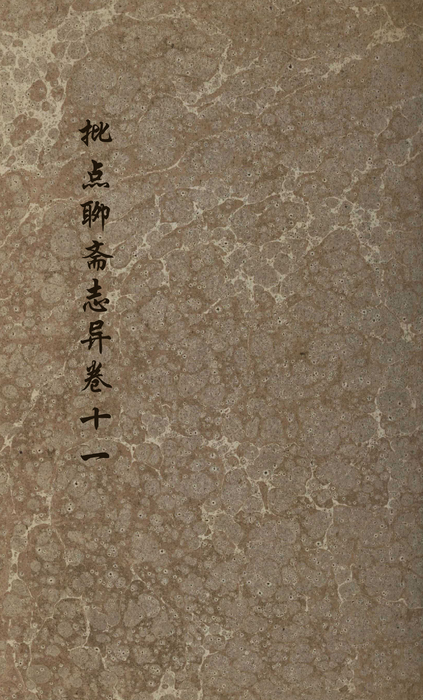 批点聊斋志异卷十一